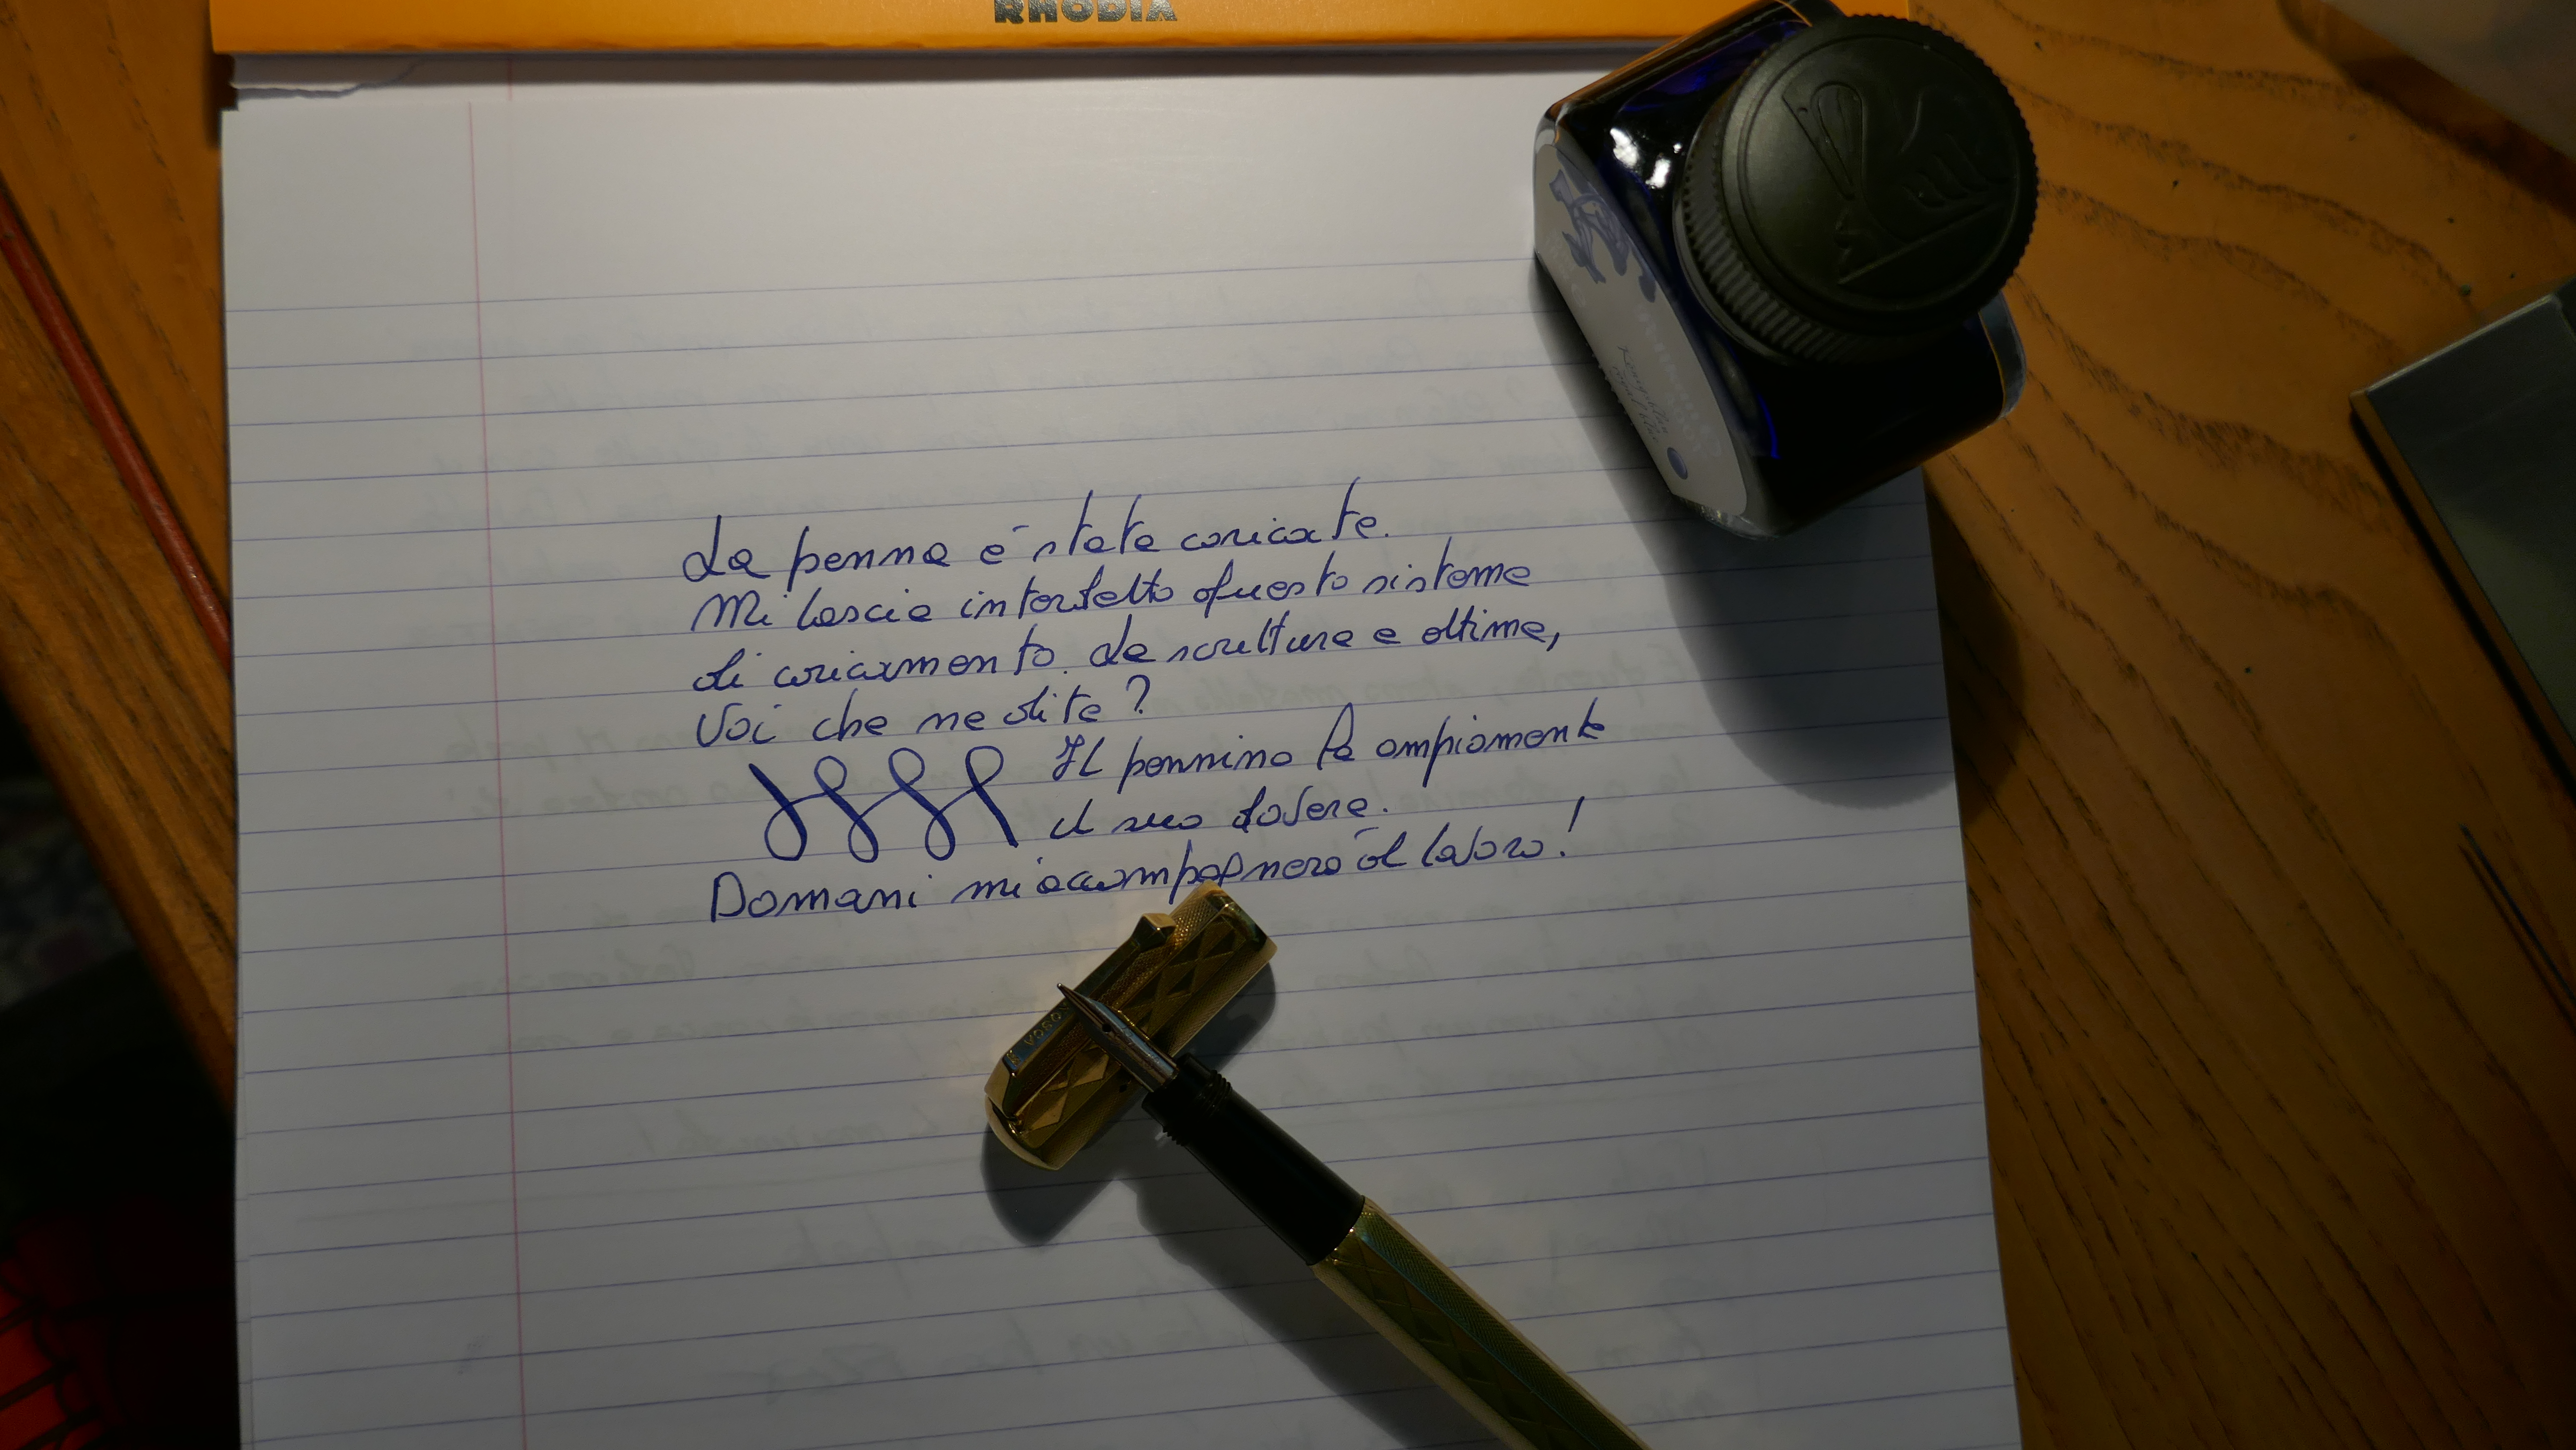 RHODIA
La penna è stata caricata.
Mi lascia interdetto questo sistema
di caricamento. La scrittura è ottima,
Voi che ne dite?
Il pennino fa ampiamente
il suo dovere.
Domani mi accompagnerà al lavoro!
Pelikan